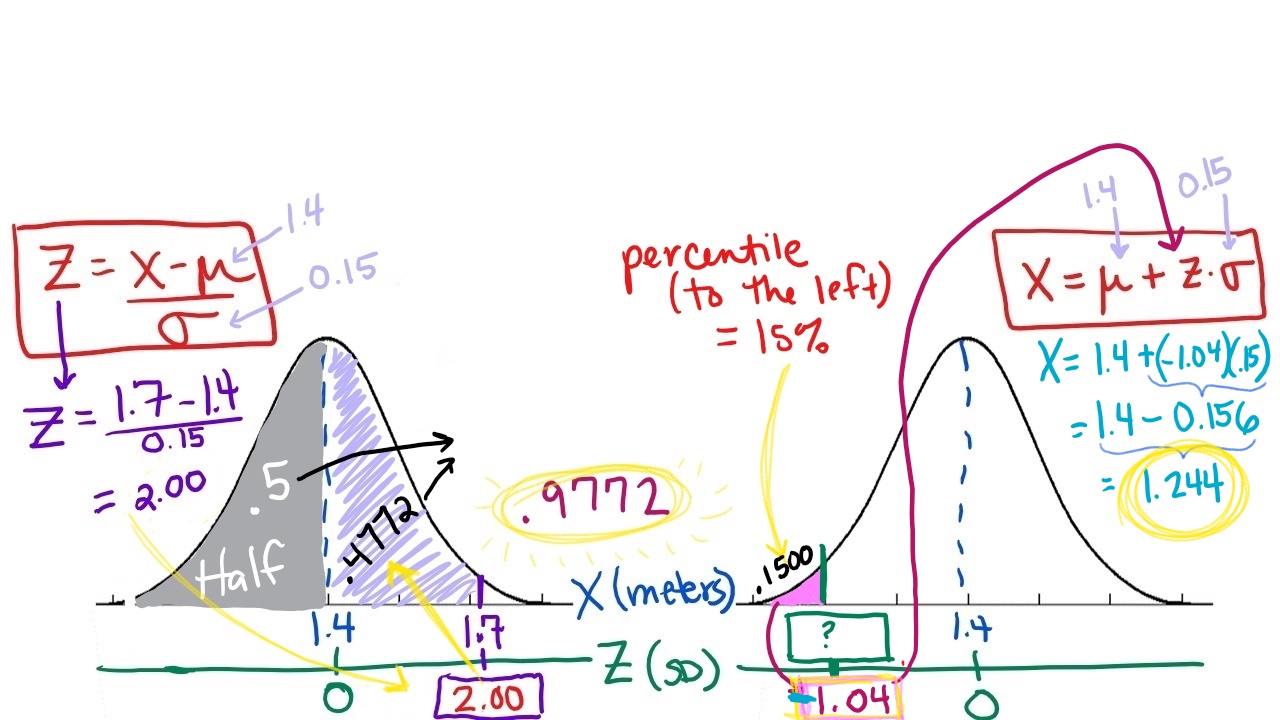 Z = X - μ
σ
1.4
0.15
Z = 1.7 - 1.4
0.15
= 2.00
.5
Half
.4772
.9772
1.4
1.7
X (meters)
Z (SD)
0
2.00
percentile
(to the left)
= 15%
.1500
?
-1.04
1.4
0
1.4
0.15
X = μ + Z · σ
X = 1.4 + (-1.04)(.15)
= 1.4 - 0.156
= 1.244